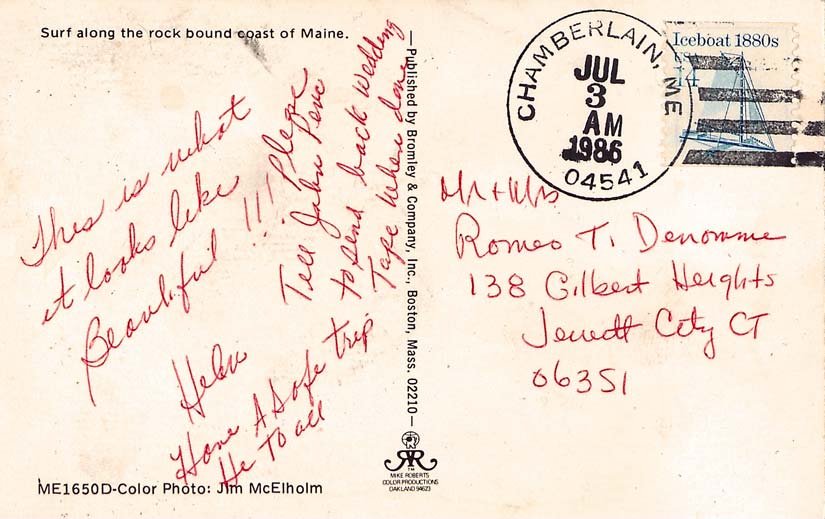 Surf along the rock bound coast of Maine.
This is what
it looks like
Beautiful !!!
Helen
Please
Tell John
to send back Wedding
Tape when done
Have A Safe trip
He To all
ME1650D-Color Photo: Jim McElholm
—Published by Bromley & Company, Inc., Boston, Mass. 02210—
TM
MIKE ROBERTS
COLOR PRODUCTIONS
OAKLAND 94623
CHAMBERLAIN, ME
JUL
3
AM
1986
04541
Iceboat 1880s
USA
14
Mr + Mrs
Romeo T. Denomme
138 Gilbert Heights
Jewett City CT
06351